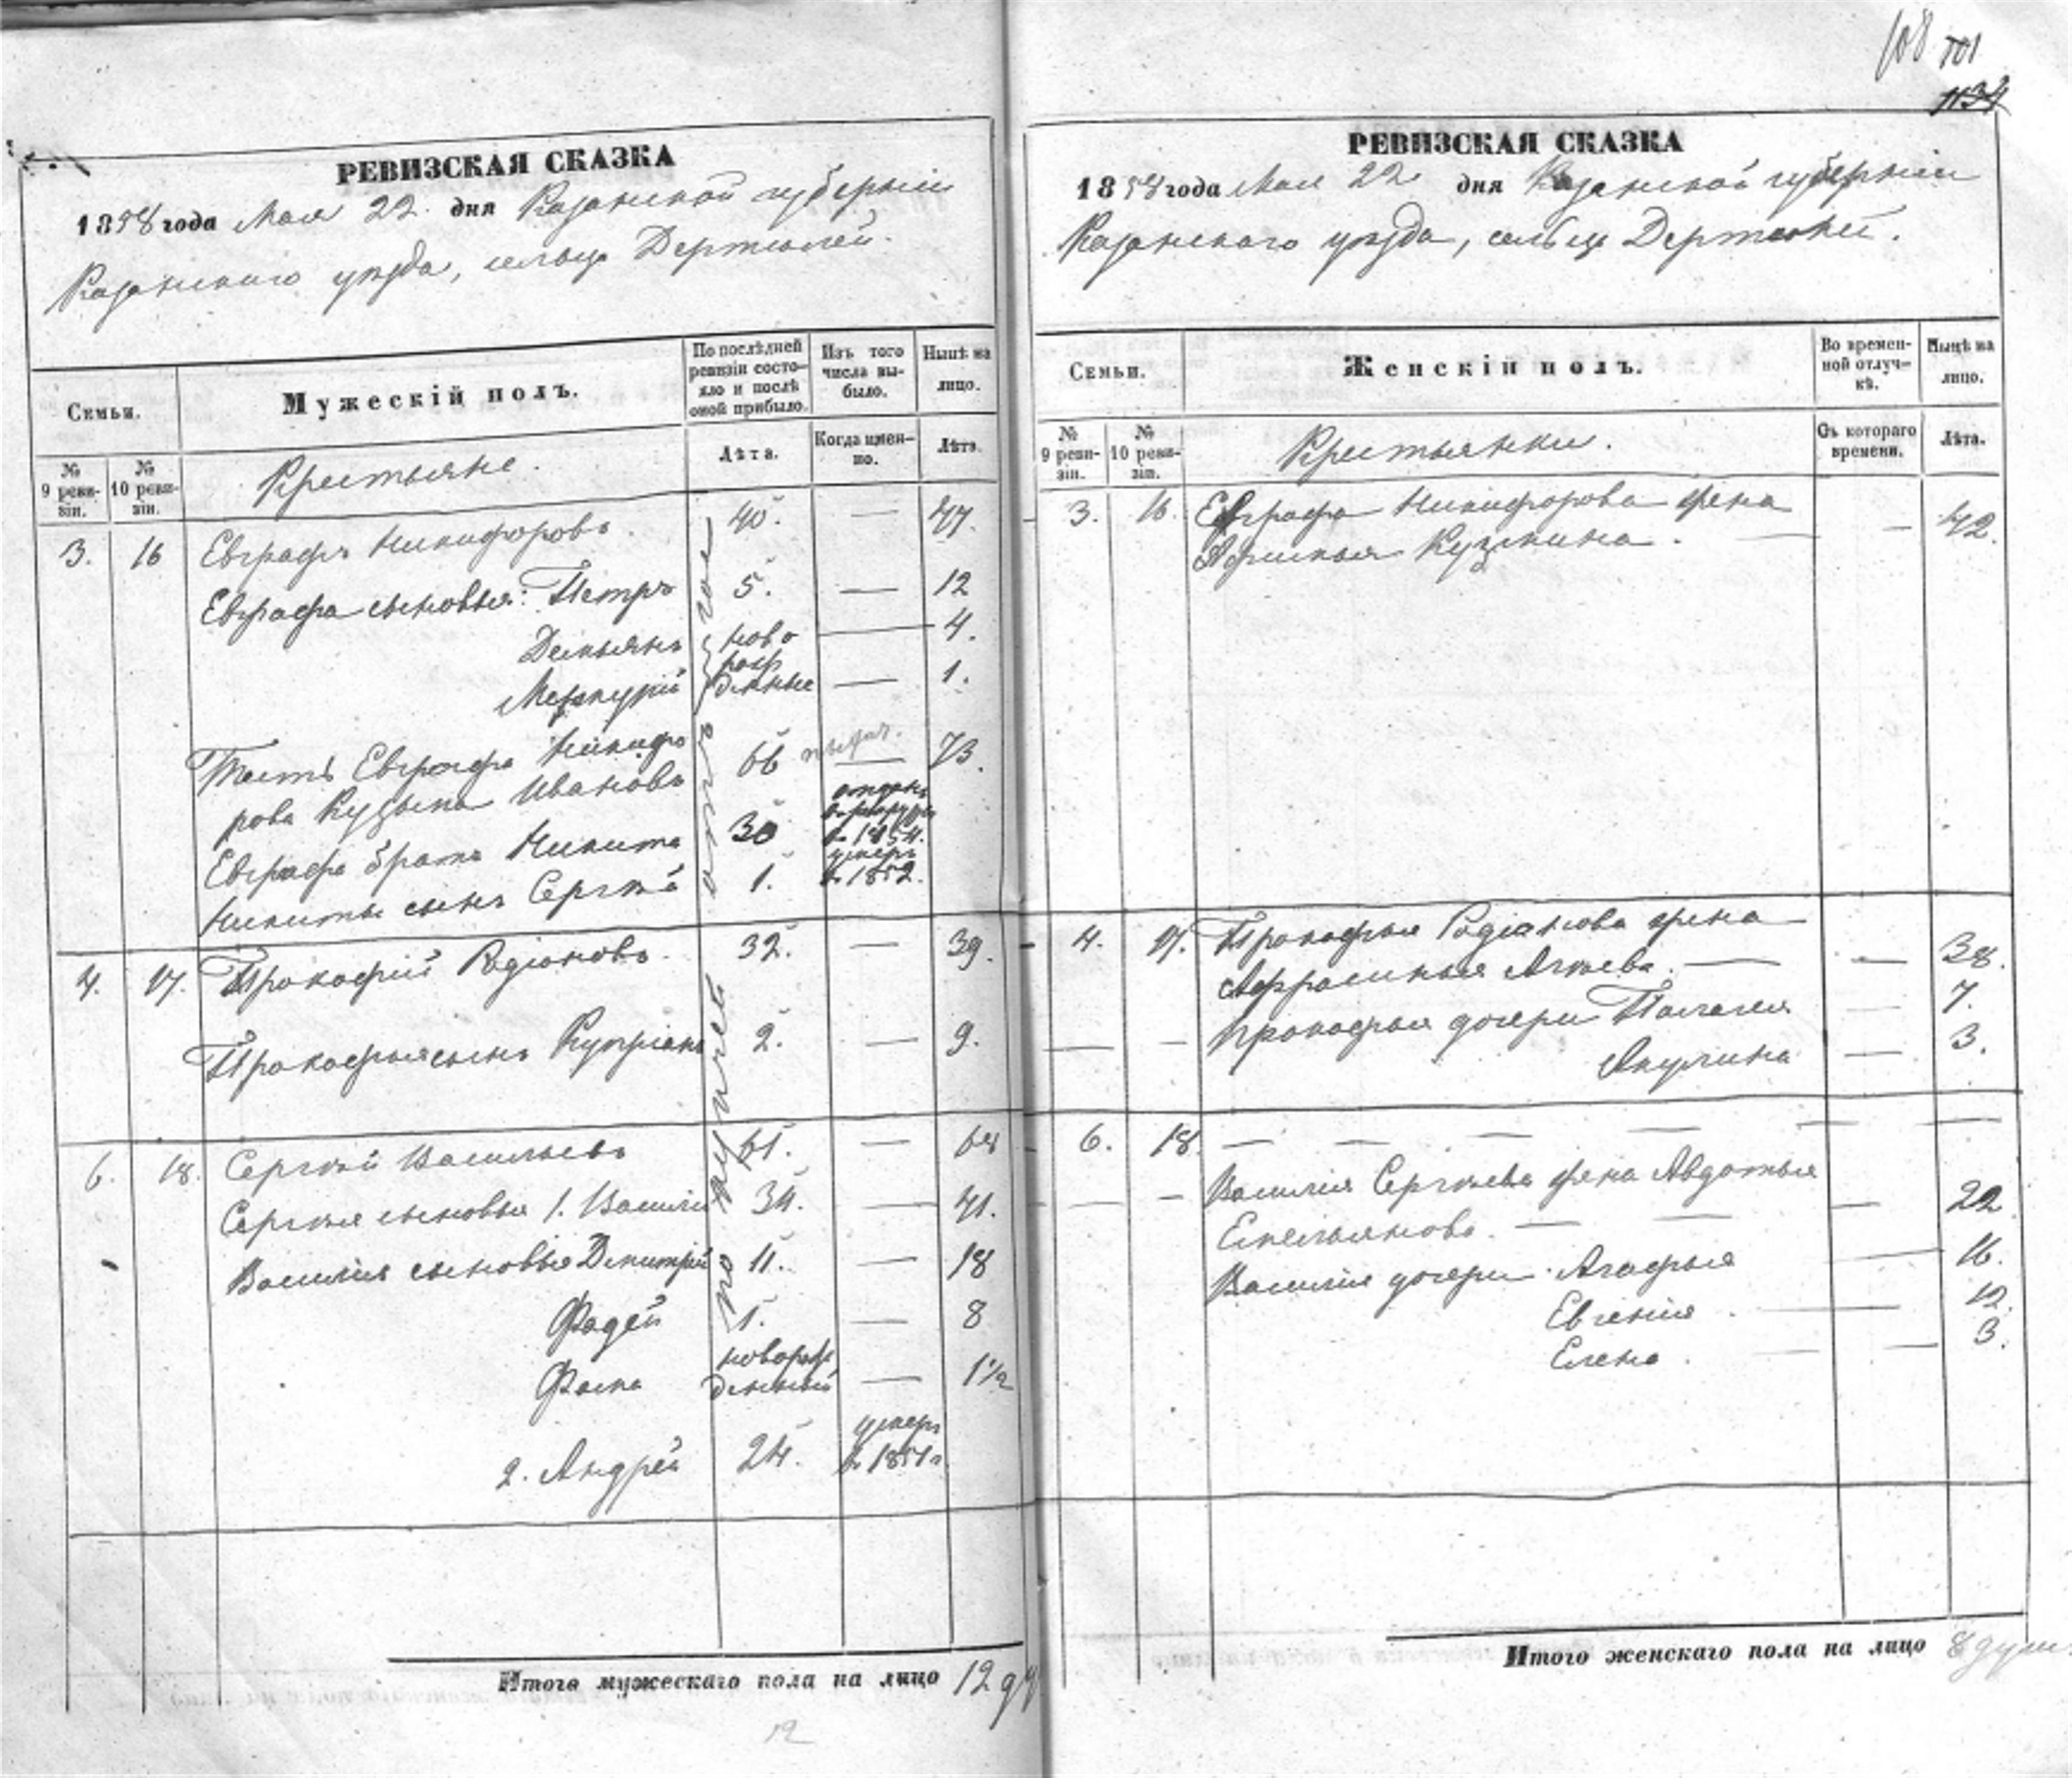 108 101
1134
РЕВИЗСКАЯ СКАЗКА
1858 года Мая 22 дня Казанской губерніи
Казанскаго уезда, сельца
Семьи.
Мужескій полъ.
По послѣдней ревизіи состояло и послѣ оной прибыло.
Изъ того числа выбыло.
Нынѣ на лицо.
№ 9 ревизіи.
№ 10 ревизіи.
Крестьяне.
Лѣта.
Когда именно.
Лѣта.
3. 16 Евграфъ Никифоровъ 40. — 47.
Евграфа сыновья: Петръ 5. — 12
Демьянъ ново — 4.
Меркурій рожденные — 1.
Тесть Евграфа Никифо
рова Кузьма Ивановъ 66 — 73.
Евграфа братъ Никита 30 отданъ в рекруты в 1854.
Никиты сынъ Сергѣй 1. умеръ в 1852.
4. 17. Прокофій Родіоновъ. 32. — 39.
Прокофья сынъ Купріянъ 2. — 9.
6. 18. Сергѣй Васильевъ 61. — 68
Сергѣя сыновья 1. Василій 34. — 41.
Василія сыновья Дмитрій 11. — 18
Фадей 1. — 8
Фома новорож
денный — 1½
2. Андрей 24. умеръ
в 1851 г
Итого мужескаго пола на лицо 12 ду
12
РЕВИЗСКАЯ СКАЗКА
1858 года Мая 22 дня Казанской губерніи
Казанскаго уезда, сельца
Семьи.
Женскій полъ.
Во временной отлучкѣ.
Нынѣ на лицо.
№ 9 ревизіи.
№ 10 ревизіи.
Крестьянки.
Съ котораго времени.
Лѣта.
3. 16. Евграфа Никифорова жена
Афимья Кузмина. — — 42.
4. 17. Прокофья Родіонова жена
Афросинья Агѣева. — — 38.
Прокофья дочери Палагея — 7.
Акулина — 3.
6. 18. — — — — — —
Василія Сергѣева жена Авдотья
Емельянова. — — — 22
Василія дочери Агафья — 16.
Евгенія — 12.
Елена. — — 3.
Итого женскаго пола на лицо 8 души